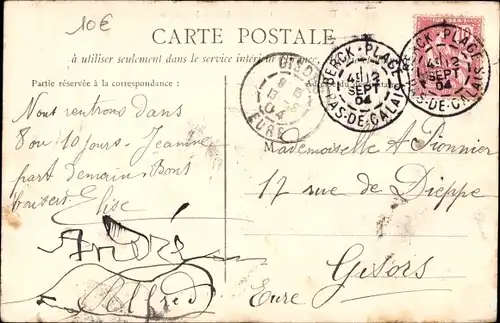 10€
CARTE POSTALE
à utiliser seulement dans le service intérieur
Partie réservée à la correspondance :
BERCK-PLAGE
4E 12
SEPT
04
PAS-DE-CALAIS
BERCK-PLAGE
4E 12
SEPT
04
PAS-DE-CALAIS
EURE
Nous rentrons dans
8 ou 10 jours. Jeanne
part demain. Bons
baisers. Elise
André
Alfred
Mademoiselle A. Pionnier
17 rue de Dieppe
Gisors
Eure